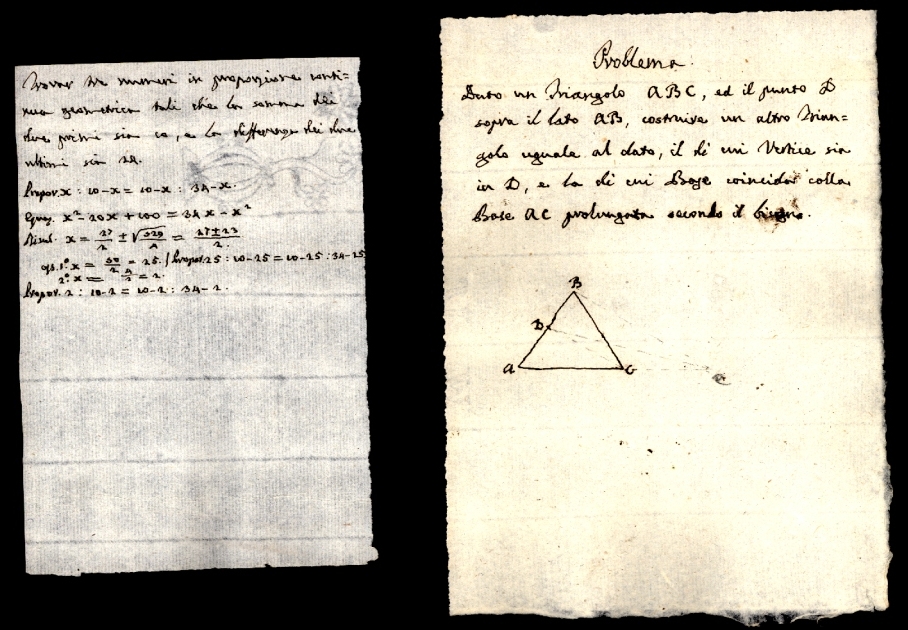 Trovar tre numeri in proporzione conti=
nua geometrica tali che la somma dei
due primi sia 10, e la differenza dei due
ultimi sia 24.
Propor. x : 10-x = 10-x : 34-x.
Equaz. x² - 20x + 100 = 34x - x²
x = 27/2 ± √529/4 = 27±23/2.
1.° x = 50/2 = 25. / Propor. 25 : 10-25 = 10-25 : 34-25
2.° x = 4/2 = 2.
Propor. 2 : 10-2 = 10-2 : 34-2.
Problema.
Dato un Triangolo ABC, ed il punto D
sopra il lato AB, costruire un altro Trian=
golo uguale al dato, il di cui Vertice sia
in D, e la di cui Base coincida colla
Base AC prolungata secondo il bisogno.
B
D
A C